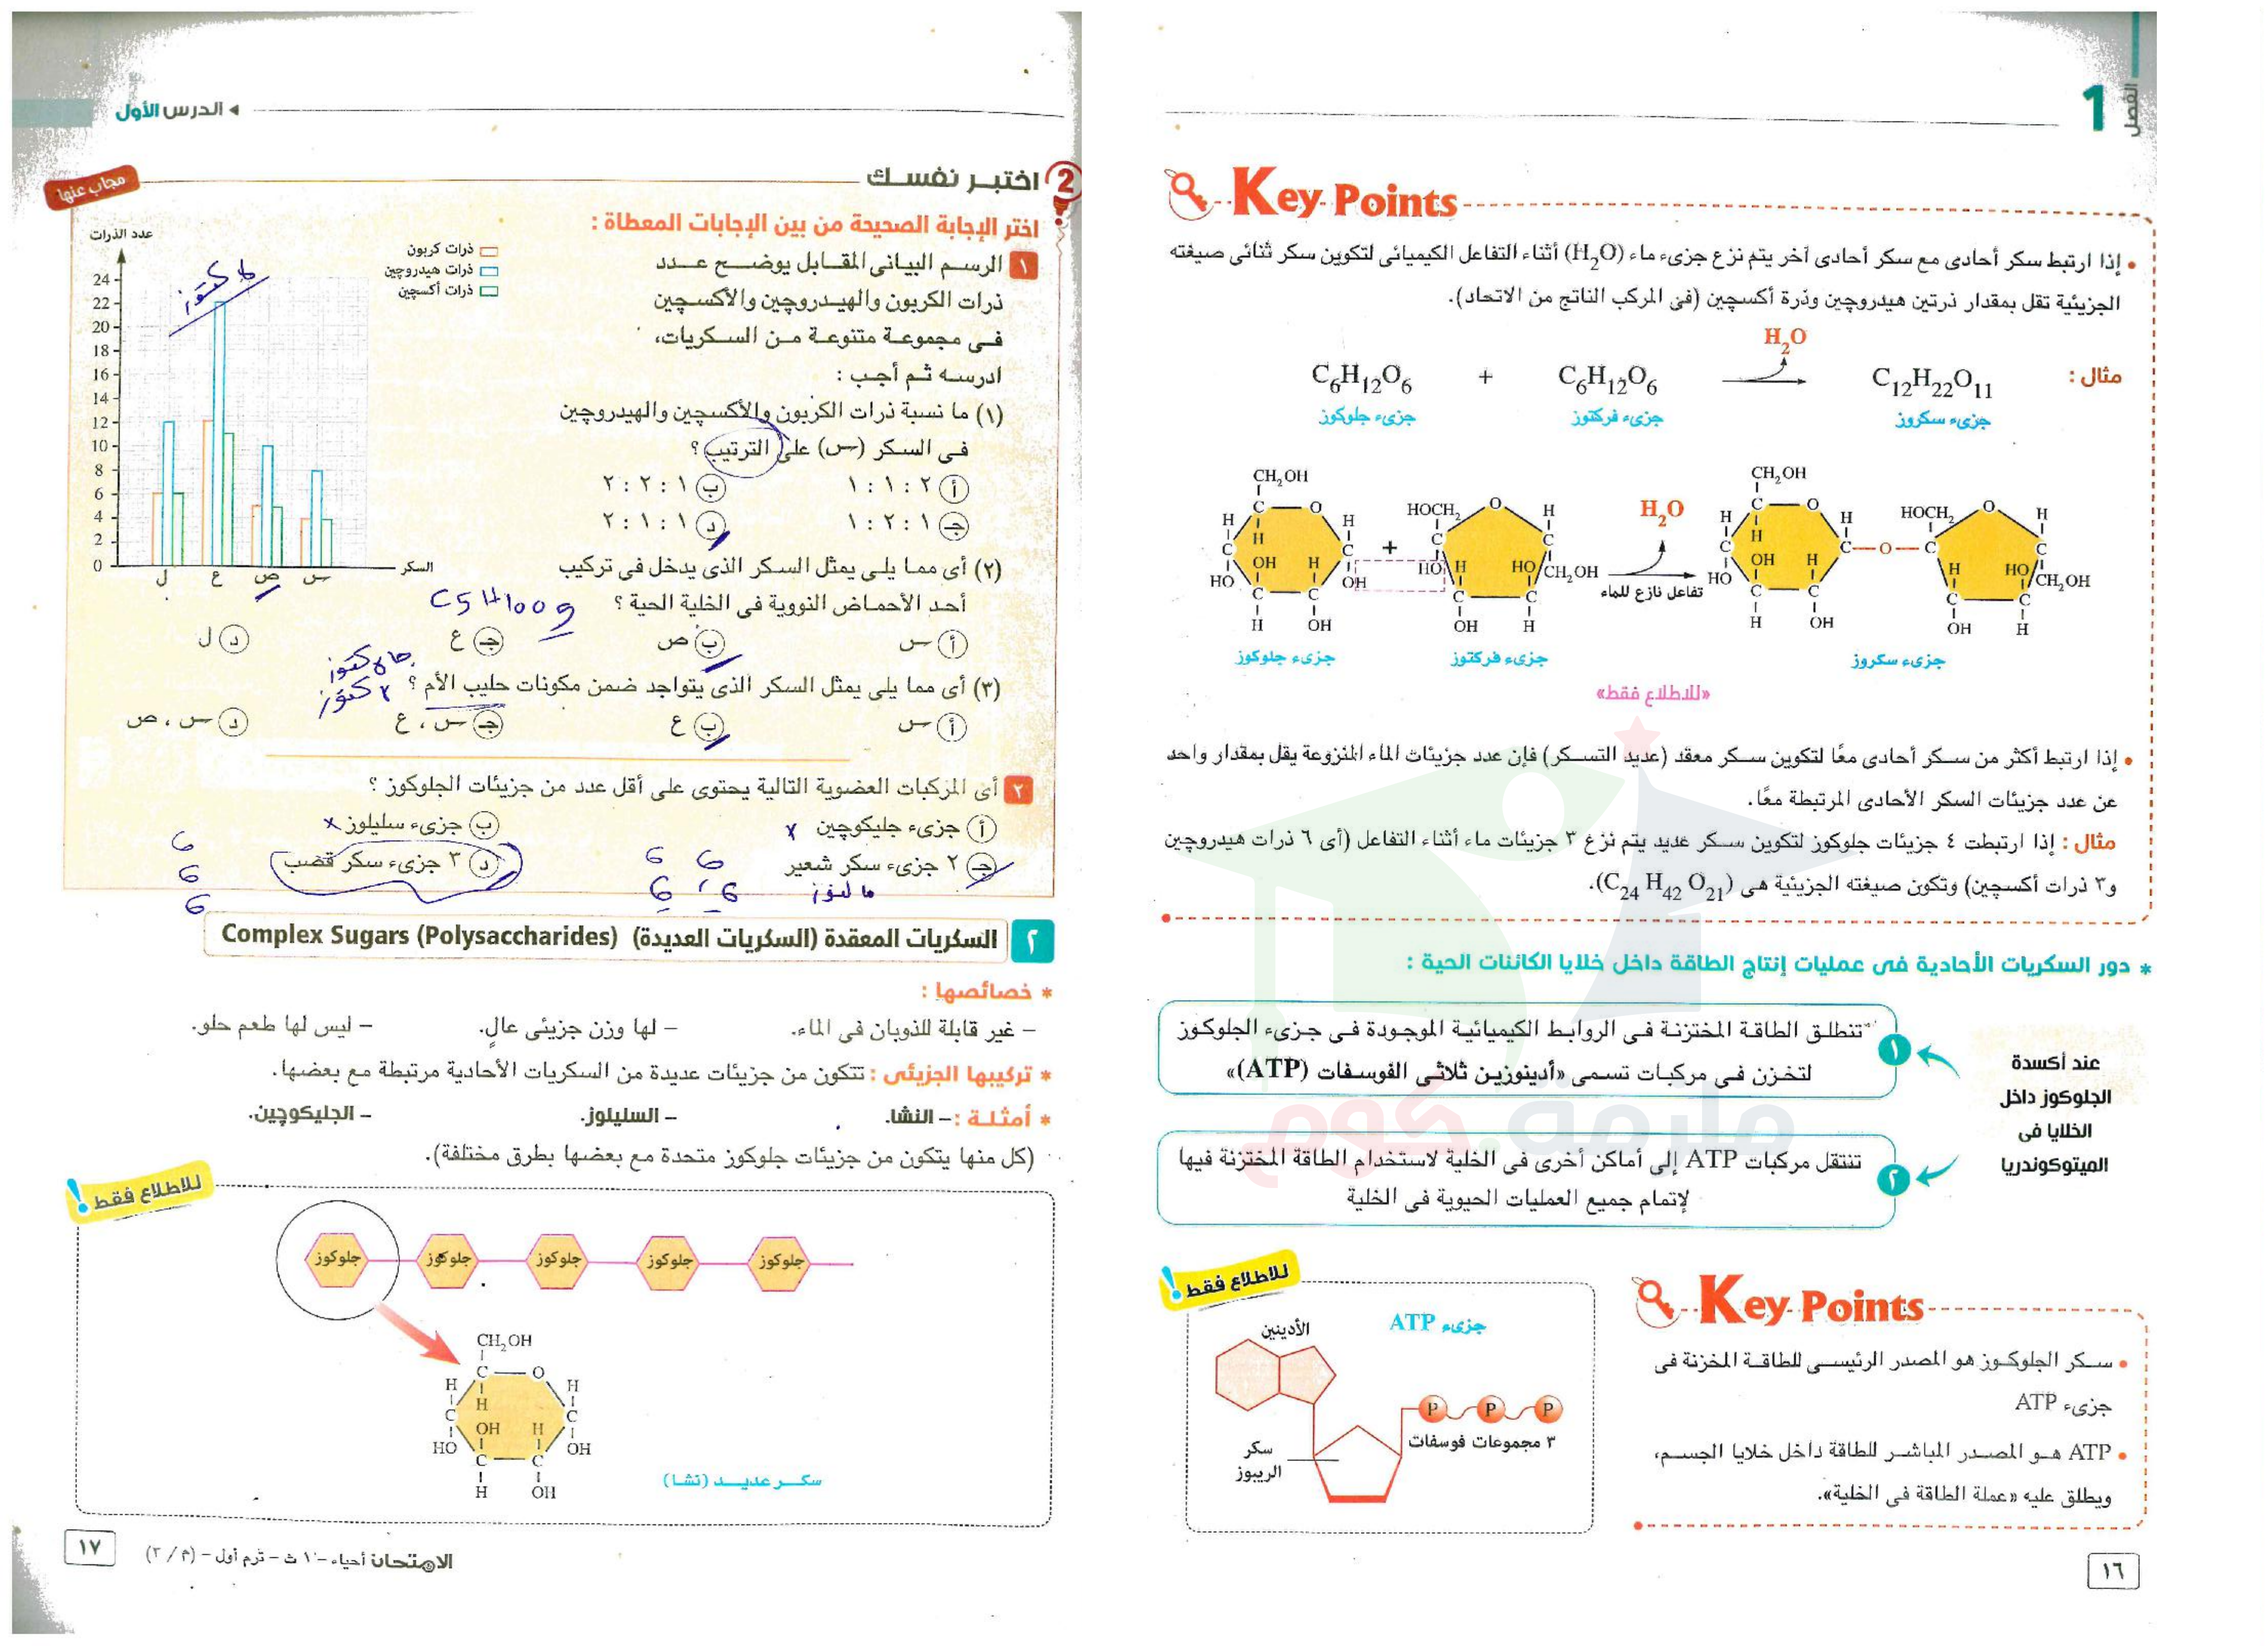 الفصل
1
Key Points
• إذا ارتبط سكر أحادى مع سكر أحادى آخر يتم نزع جزىء ماء (H2O) أثناء التفاعل الكيميائى لتكوين سكر ثنائى صيغته
الجزيئية تقل بمقدار ذرتين هيدروچين وذرة أكسچين (فى المركب الناتج من الاتحاد).
مثال :
H2O
C6H12O6 + C6H12O6 C12H22O11
جزىء جلوكوز
جزىء فركتوز
جزىء سكروز
CH2OH
HOCH2
H2O
CH2OH
HOCH2
تفاعل نازع للماء
جزىء جلوكوز
جزىء فركتوز
جزىء سكروز
«للاطلاع فقط»
• إذا ارتبط أكثر من سكر أحادى معًا لتكوين سكر معقد (عديد التسكر) فإن عدد جزيئات الماء المنزوعة يقل بمقدار واحد
عن عدد جزيئات السكر الأحادى المرتبطة معًا.
مثال : إذا ارتبطت ٤ جزيئات جلوكوز لتكوين سكر عديد يتم نزع ٣ جزيئات ماء أثناء التفاعل (أى ٦ ذرات هيدروچين
و٣ ذرات أكسچين) وتكون صيغته الجزيئية هى (C24 H42 O21).
* دور السكريات الأحادية فى عمليات إنتاج الطاقة داخل خلايا الكائنات الحية :
عند أكسدة
الجلوكوز داخل
الخلايا فى
الميتوكوندريا
١
تنطلق الطاقة المختزنة فى الروابط الكيميائية الموجودة فى جزىء الجلوكوز
لتخزن فى مركبات تسمى «أدينوزين ثلاثى الفوسفات (ATP)»
٢
تنتقل مركبات ATP إلى أماكن أخرى فى الخلية لاستخدام الطاقة المختزنة فيها
لإتمام جميع العمليات الحيوية فى الخلية
Key Points
• سكر الجلوكوز هو المصدر الرئيسى للطاقة المخزنة فى
جزىء ATP
• ATP هو المصدر المباشر للطاقة داخل خلايا الجسم،
ويطلق عليه «عملة الطاقة فى الخلية».
للاطلاع فقط !
جزىء ATP
الأدينين
P P P
٣ مجموعات فوسفات
سكر
الريبوز
١٦
ملزمة كوم
◂ الدرس الأول
2 اختبر نفسك
مجاب عنها
اختر الإجابة الصحيحة من بين الإجابات المعطاة :
١ الرسم البيانى المقابل يوضح عدد
ذرات الكربون والهيدروچين والأكسچين
فى مجموعة متنوعة من السكريات،
ادرسه ثم أجب :
عدد الذرات
ذرات كربون
ذرات هيدروچين
ذرات أكسچين
24
22
20
18
16
14
12
10
8
6
4
2
0
ل ع ص س
السكر
(١) ما نسبة ذرات الكربون والأكسچين والهيدروچين
فى السكر (س) على الترتيب ؟
أ ٢ : ١ : ١
ب ١ : ٢ : ٢
ج ١ : ٢ : ١
د ١ : ١ : ٢
(٢) أى مما يلى يمثل السكر الذى يدخل فى تركيب
أحد الأحماض النووية فى الخلية الحية ؟
أ س
ب ص
ج ع
د ل
(٣) أى مما يلى يمثل السكر الذى يتواجد ضمن مكونات حليب الأم ؟
أ س
ب ع
ج س ، ع
د س ، ص
٢ أى المركبات العضوية التالية يحتوى على أقل عدد من جزيئات الجلوكوز ؟
أ جزىء جليكوچين x
ب جزىء سليلوز x
ج ٢ جزىء سكر شعير
د ٣ جزىء سكر قصب
مالتوز
6 6
6 6
6
6
6
٢ السكريات المعقدة (السكريات العديدة) Complex Sugars (Polysaccharides)
* خصائصها :
– غير قابلة للذوبان فى الماء. – لها وزن جزيئى عالٍ. – ليس لها طعم حلو.
* تركيبها الجزيئى : تتكون من جزيئات عديدة من السكريات الأحادية مرتبطة مع بعضها.
* أمثلة : – النشا. – السليلوز. – الجليكوچين.
(كل منها يتكون من جزيئات جلوكوز متحدة مع بعضها بطرق مختلفة).
للاطلاع فقط !
جلوكوز جلوكوز جلوكوز جلوكوز جلوكوز
CH2OH
سكر عديد (نشا)
الامتحان أحياء – ١ ث – ترم أول – (م / ٢)
١٧